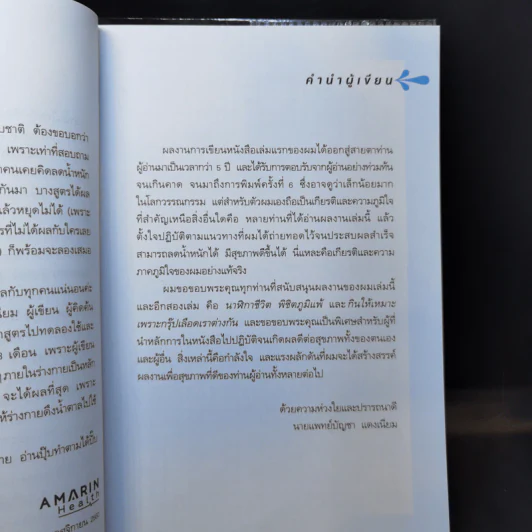 บชาติ ต้องขอบอกว่า
เพราะเท่าที่สอบถาม
คนเคยคิดลดน้ำหนัก
กันมา บางสูตรได้ผล
แล้วหยุดไม่ได้ (เพราะ
รที่ไม่ได้ผลกับใครเลย
) ก็พร้อมจะลองเสมอ
ลกับทุกคนแน่นอนค่ะ
นียม ผู้เขียน ผู้คิดค้น
าสูตรไปทดลองใช้และ
3 เดือน เพราะผู้เขียน
ภายในร่างกายเป็นหลัก
จะได้ผลที่สุด เพราะ
ห้ร่างกายดึงน้ำตาลไปใช้
าย อ่านปุ๊บทำตามได้ปั๊บ
AMARIN
Health
คำนำผู้เขียน
ผลงานการเขียนหนังสือเล่มแรกของผมได้ออกสู่สายตาท่าน
ผู้อ่านมาเป็นเวลากว่า 5 ปี และได้รับการตอบรับจากผู้อ่านอย่างท่วมท้น
จนเกินคาด จนมาถึงการพิมพ์ครั้งที่ 6 ซึ่งอาจดูว่าเล็กน้อยมาก
ในโลกวรรณกรรม แต่สำหรับตัวผมเองถือเป็นเกียรติและความภูมิใจ
ที่สำคัญเหนือสิ่งอื่นใดคือ หลายท่านที่ได้อ่านผลงานเล่มนี้ แล้ว
ตั้งใจปฏิบัติตามแนวทางที่ผมได้ถ่ายทอดไว้จนประสบผลสำเร็จ
สามารถลดน้ำหนักได้ มีสุขภาพดีขึ้นได้ นี่แหละคือเกียรติและความ
ภาคภูมิใจของผมอย่างแท้จริง
ผมขอขอบพระคุณทุกท่านที่สนับสนุนผลงานของผมเล่มนี้
และอีกสองเล่ม คือ นาฬิกาชีวิต พิชิตภูมิแพ้ และ กินให้เหมาะ
เพราะกรุ๊ปเลือดเราต่างกัน และขอขอบพระคุณเป็นพิเศษสำหรับผู้ที่
นำหลักการในหนังสือไปปฏิบัติจนเกิดผลดีต่อสุขภาพทั้งของตนเอง
และผู้อื่น สิ่งเหล่านี้คือกำลังใจ และแรงผลักดันที่ผมจะได้สร้างสรรค์
ผลงานเพื่อสุขภาพที่ดีของท่านผู้อ่านทั้งหลายต่อไป
ด้วยความห่วงใยและปรารถนาดี
นายแพทย์บัญชา แดงเนียม